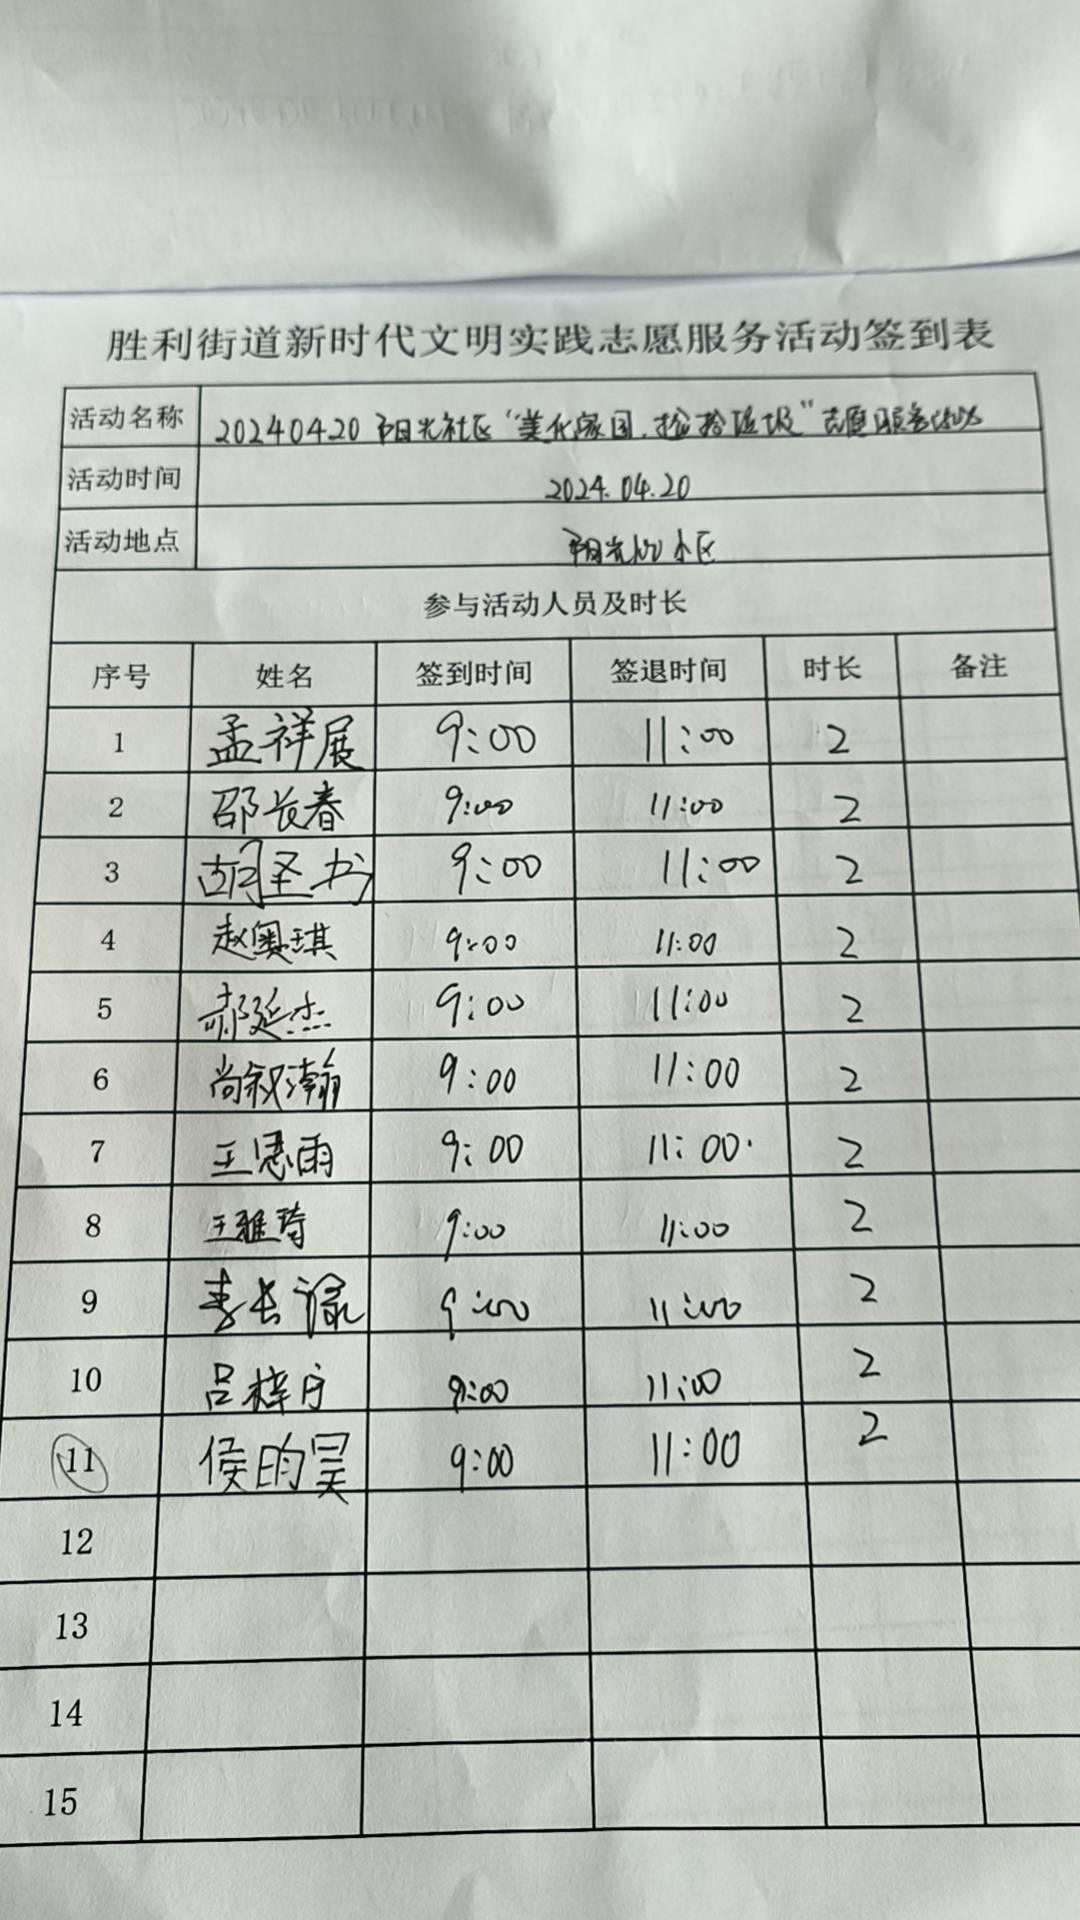 胜利街道新时代文明实践志愿服务活动签到表
活动名称 20240420阳光社区“美化家园,捡拾垃圾”志愿服务活动
活动时间 2024.04.20
活动地点 阳光 小区
参与活动人员及时长
序号 姓名 签到时间 签退时间 时长 备注
1 孟祥展 9:00 11:00 2
2 邵长春 9:00 11:00 2
3 胡圣书 9:00 11:00 2
4 赵奥琪 9:00 11:00 2
5 郝延杰 9:00 11:00 2
6 尚叙瀚 9:00 11:00 2
7 王思雨 9:00 11:00 2
8 王雅琦 9:00 11:00 2
9 李长禄 9:00 11:00 2
10 吕梓 9:00 11:00 2
11 侯昀昊 9:00 11:00 2
12
13
14
15